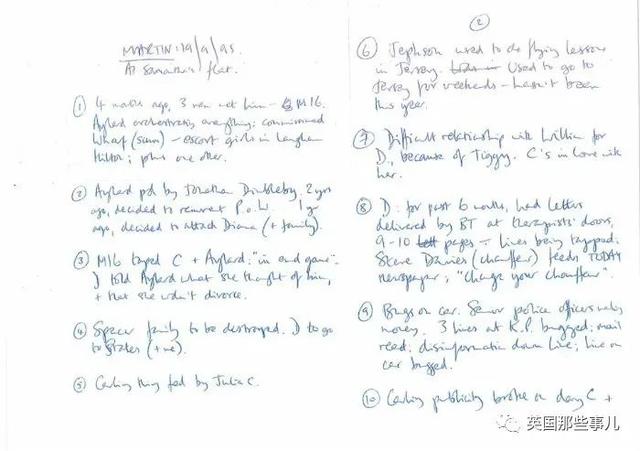 MARTIN: 19/9/95.
At Samantha's flat.
① 4 months ago, 3 men met him - MI6.
Aylard orchestrating everything; commissioned
Wharf (Sun) - escort girls in Langham
Hilton; plus one other.
② Aylard pd by Jonathan Dimbleby. 2 yrs
ago, decided to reinvent P.o.W. 1 yr
ago, decided to attack Diana (+ family).
③ MI6 taped C + Aylard: "in end game".
D told Aylard what she thought of him,
+ that she wdn't divorce.
④ Spencer family to be destroyed. D to go
to States (+ me).
⑤ Carling thing fed by Julia C.
②
⑥ Jephson used to do flying lessons
in Jersey. Used to go to
Jersey for weekends - hasn't been
this year.
⑦ Difficult relationship with William for
D., because of Tiggy. C's in love with
her.
⑧ D: for past 6 months, had letters
delivered by BT at therapists' doors,
9-10 pages - lines being tapped.
Steve Davies (chauffeur) feeds TODAY
newspaper; "change your chauffeur".
⑨ Bugs on car. Senior police officers making
money. 3 lines at K.P. bugged; mail
read; disinformation down line; line on
car bugged.
⑩ Carling publicity broke on day C +
英国那些事儿